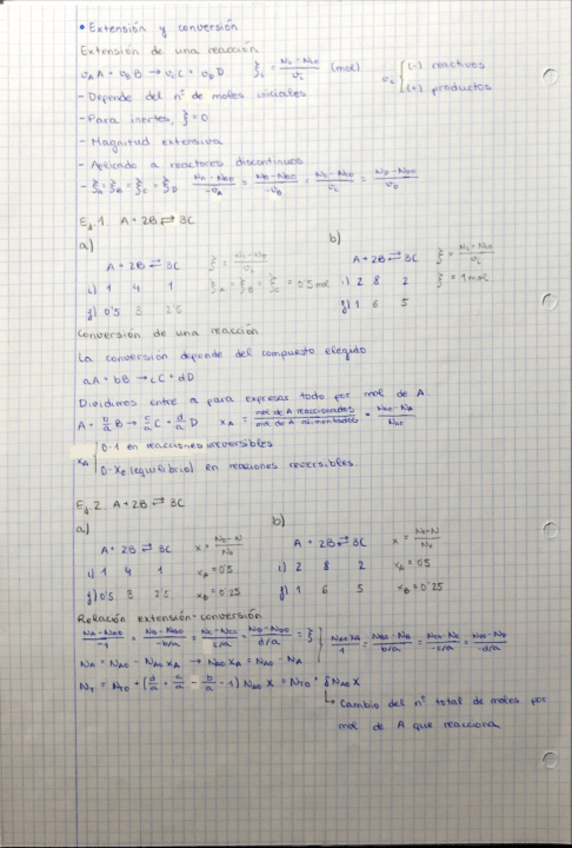 • Extensión y conversión
Extensión de una reacción
υ_A A + υ_B B → υ_C C + υ_D D   ξ_i = (N_i - N_i0)/υ_i (mol)   υ_i { (-) reactivos
(+) productos
- Depende del nº de moles iniciales
- Para inertes, ξ = 0
- Magnitud extensiva
- Aplicado a reactores discontinuos
- ξ_A = ξ_B = ξ_C = ξ_D   (N_A - N_A0)/-υ_A = (N_B - N_B0)/-υ_B = (N_C - N_C0)/υ_C = (N_D - N_D0)/υ_D
Ej. 1. A + 2B ⇄ 3C
a)
A + 2B ⇄ 3C   ξ = (N_i - N_i0)/υ_i
i) 1 4 1   ξ_A = ξ_B = ξ_C = 0'5 mol
f) 0'5 3 2'5
b)
A + 2B ⇄ 3C   ξ = (N_i - N_i0)/υ_i
i) 2 8 2   ξ = 1 mol
f) 1 6 5
Conversión de una reacción
La conversión depende del compuesto elegido
aA + bB → cC + dD
Dividimos entre a para expresar todo por mol de A.
A + b/a B → c/a C + d/a D   x_A = mol de A reaccionados / mol de A alimentados = (N_A0 - N_A)/N_A0
x_A { 0-1 en reacciones irreversibles
0-Xe (equilibrio) en reacciones reversibles.
Ej. 2. A + 2B ⇄ 3C
a)
A + 2B ⇄ 3C   x = (N_0 - N)/N_0
i) 1 4 1   x_A = 0'5
f) 0'5 3 2'5   x_B = 0'25
b)
A + 2B ⇄ 3C   x = (N_0 - N)/N_0
i) 2 8 2   x_A = 0'5
f) 1 6 5   x_B = 0'25
Relación extensión-conversión
(N_A - N_A0)/-1 = (N_B - N_B0)/-b/a = (N_C - N_C0)/c/a = (N_D - N_D0)/d/a = ξ } N_A0 X_A/1 = (N_B0 - N_B)/b/a = (N_C0 - N_C)/-c/a = (N_D0 - N_D)/-d/a
N_A = N_A0 - N_A0 x_A → N_A0 x_A = N_A0 - N_A
N_T = N_T0 + (d/a + c/a - b/a - 1) N_A0 X = N_T0 + δ N_A0 X
↳ Cambio del nº total de moles por
mol de A que reacciona